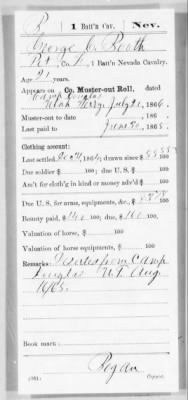 B | 1 Batt'n Cav. | Nev.
George C. Booth
Pvt, Co. , 1 Batt'n Nevada Cavalry.
Age 21 years.
Appears on Co. Muster-out Roll, dated
Camp Douglas
Utah Terry July 21, 1866.
Muster-out to date 186 .
Last paid to June 30, 1865.
Clothing account:
Last settled 186 ; drawn since $ 100
Due soldier $ 100; due U. S. $ 100
Am't for cloth'g in kind or money adv'd $ 100
Due U. S. for arms, equipments, &c., $ 100
Bounty paid $ 100; due $ 100
Valuation of horse, $ 100
Valuation of horse equipments, $ 100
Remarks: Deserted from Camp
Douglas U.T. Aug.
1865.
Book mark:
Bogan
(361) Copyist.